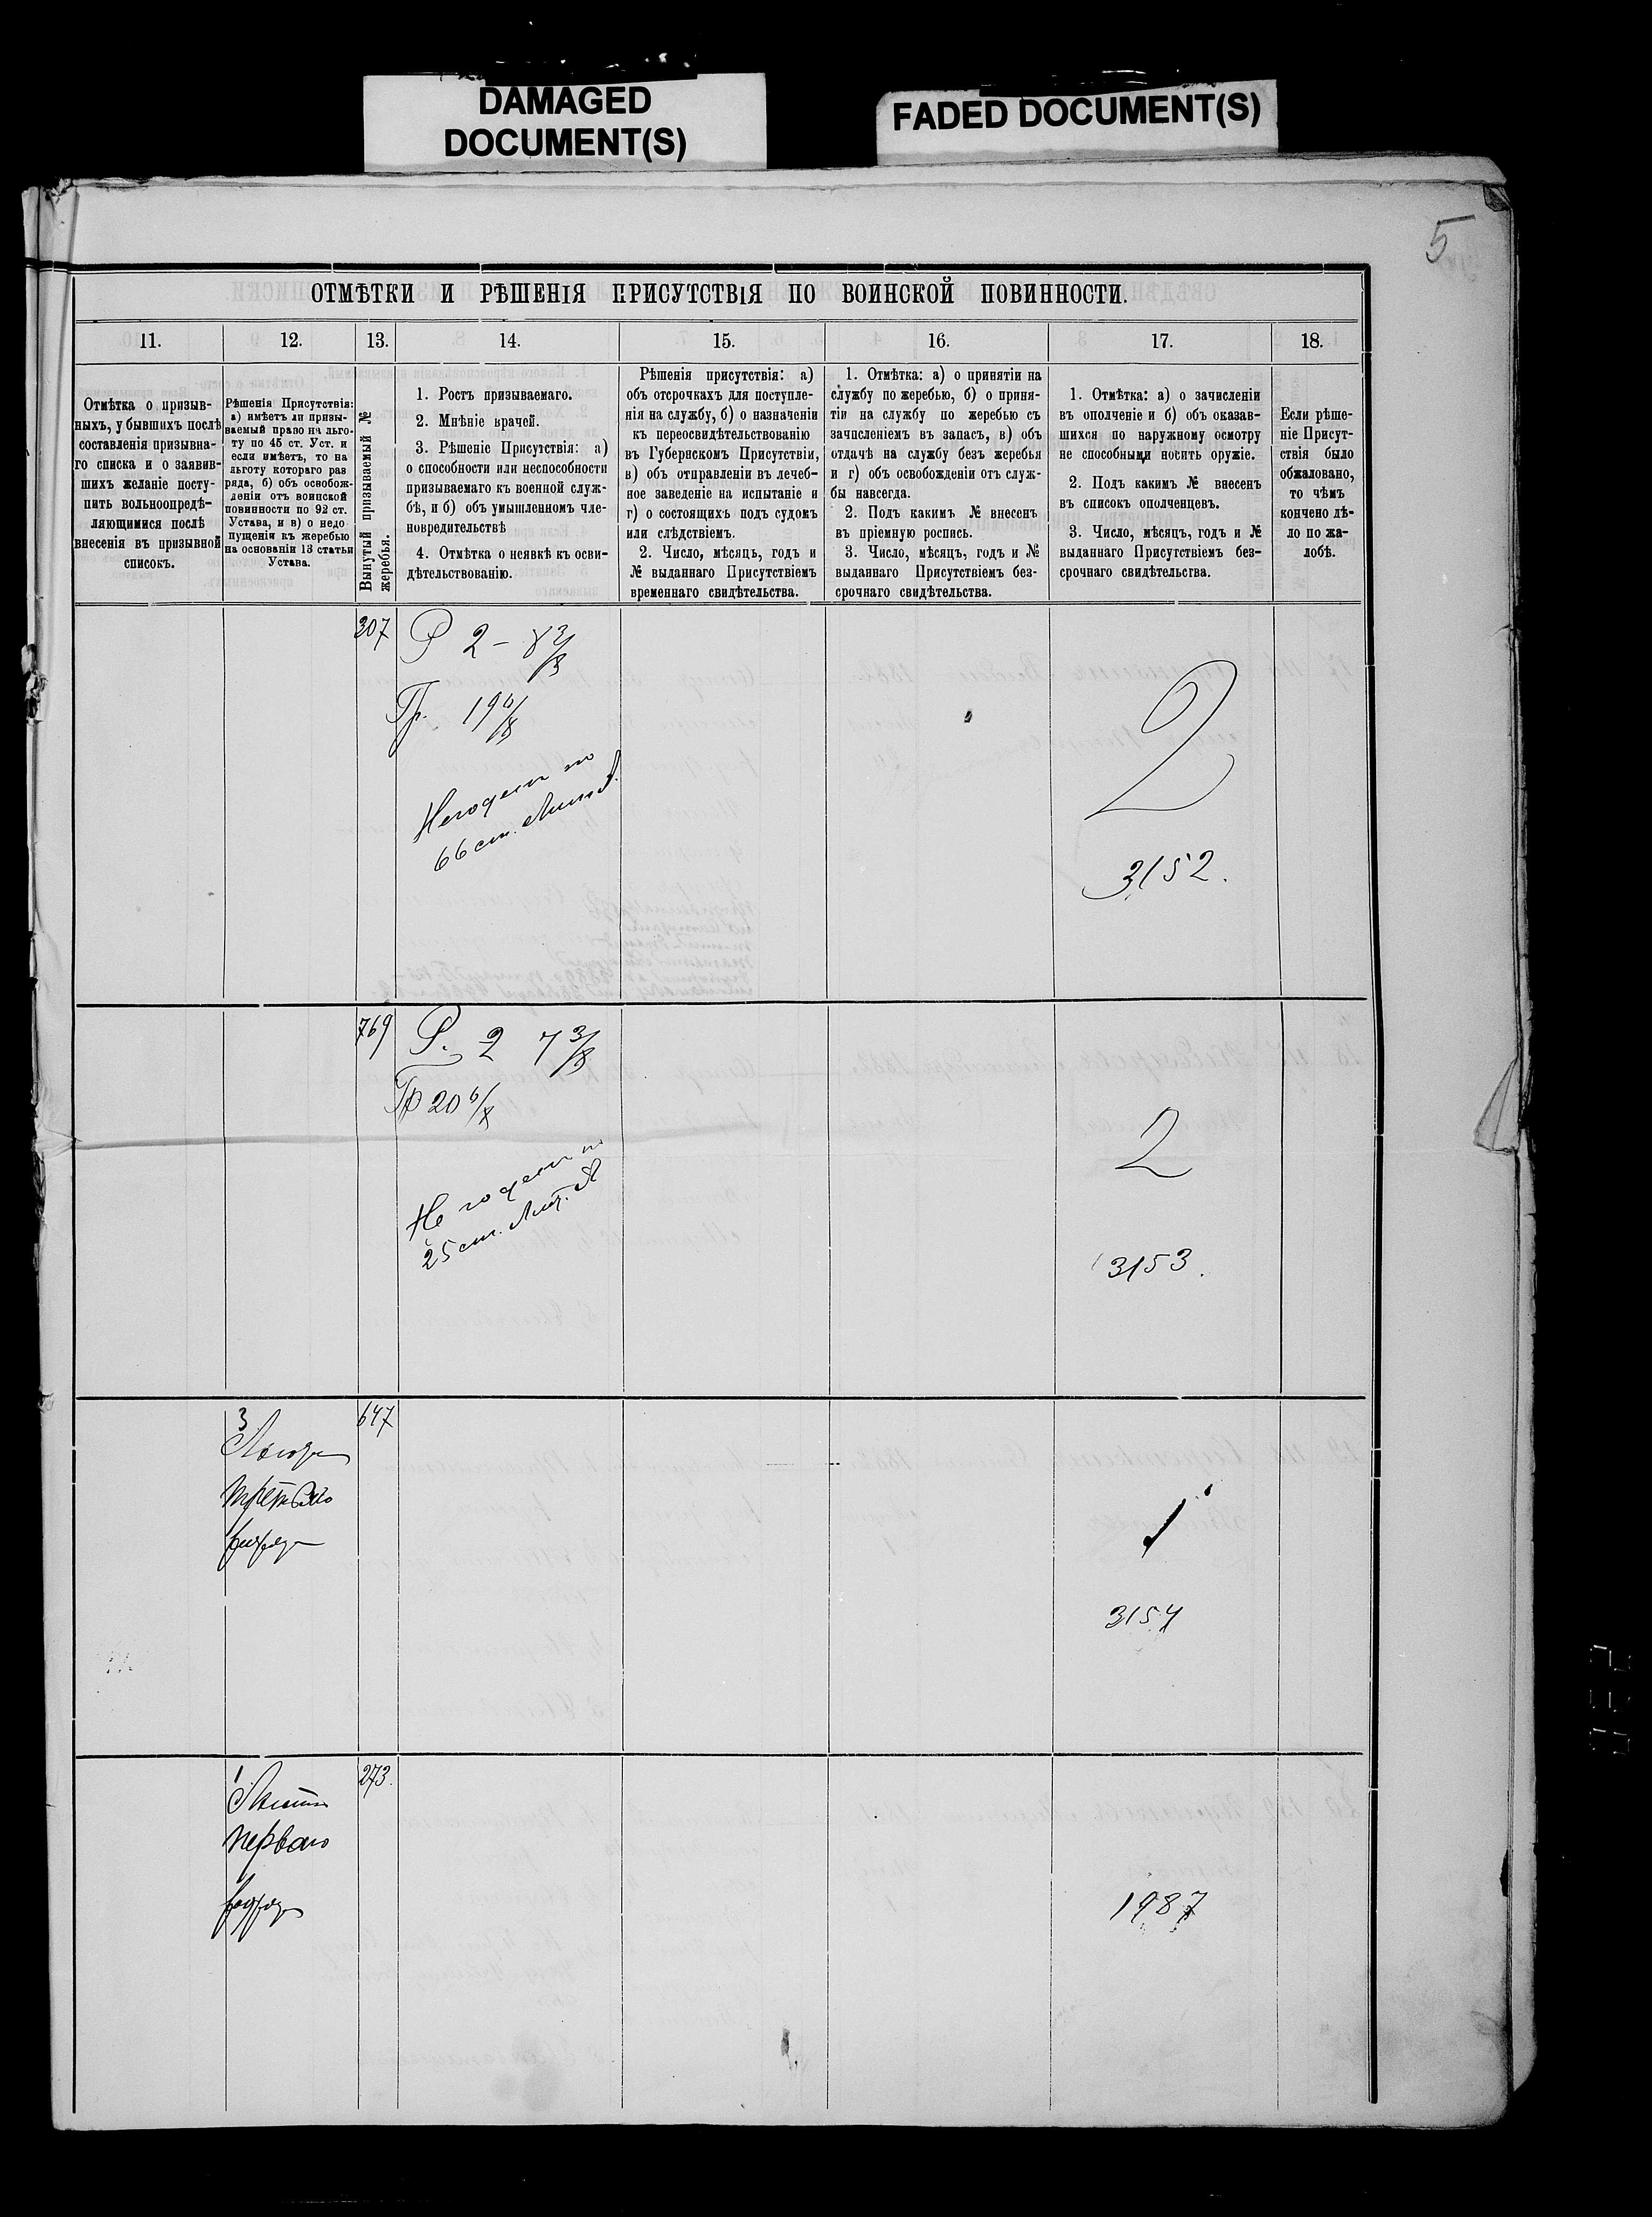 DAMAGED
DOCUMENT(S)
FADED DOCUMENT(S)
5
ОТМѢТКИ И РѢШЕНІЯ ПРИСУТСТВІЯ ПО ВОИНСКОЙ ПОВИННОСТИ.
11.
12.
13.
14.
15.
16.
17.
18.
Отмѣтка о призыв-
ныхъ, убывшихъ послѣ
составленія призывна-
го списка и о заявив-
шихъ желаніе посту-
пить вольноопредѣ-
ляющимися послѣ
внесенія въ призывной
списокъ.
Рѣшенія Присутствія:
а) имѣетъ ли призы-
ваемый право на льго-
ту по 45 ст. Уст. и
если имѣетъ, то на
льготу котораго раз
ряда, б) объ освобож-
деніи отъ воинской
повинности по 92 ст.
Устава, и в) о недо
пущеніи къ жеребью
на основаніи 13 статьи
Устава.
Вынутый призываемый №
жеребья.
1. Ростъ призываемаго.
2. Мнѣніе врачей.
3. Рѣшеніе Присутствія: а)
о способности или неспособности
призываемаго къ военной служ-
бѣ, и б) объ умышленномъ чле-
новредительствѣ
4. Отмѣтка о неявкѣ къ осви-
дѣтельствованію.
Рѣшенія присутствія: а)
объ отсрочкахъ для поступле-
нія на службу, б) о назначеніи
къ переосвидѣтельствованію
въ Губернскомъ Присутствіи,
в) объ отправленіи въ лечеб-
ное заведеніе на испытаніе и
г) о состоящихъ подъ судомъ
или слѣдствіемъ.
2. Число, мѣсяць, годъ и
№ выданнаго Присутствіемъ
временнаго свидѣтельства.
1. Отмѣтка: а) о принятіи на
службу по жеребью, б) о приня-
тіи на службу по жеребью съ
зачисленіемъ въ запасъ, в) объ
отдачѣ на службу безъ жеребья
и г) объ освобожденіи отъ служ-
бы навсегда.
2. Подъ какимъ № внесенъ
въ пріемную роспись.
3. Число, мѣсяцъ, годъ и №
выданнаго Присутствіемъ без-
срочнаго свидѣтельства.
1. Отмѣтка: а) о зачисленіи
въ ополченіе и б) объ оказав-
шихся по наружному осмотру
не способными носить оружіе.
2. Подъ какимъ № внесенъ
въ списокъ ополченцевъ.
3. Число, мѣсяцъ, годъ и №
выданнаго Присутствіемъ без-
срочнаго свидѣтельства.
Если рѣше-
ніе Присут-
ствія было
обжаловано,
то чѣмъ
кончено дѣ-
ло по жа-
лобѣ.
307
Р 2 - 8 3/8
Гр. 19 6/8
Негоденъ по
66 ст. Лит. А.
2
3152.
769
Р. 2 7 3/8
Гр 20 6/8
Не годенъ по
25 ст. Лит. А
2
3153.
3
Льгота
третьяго
разряда
647
1
3154
1
Льгота
перваго
разряда
273.
1987